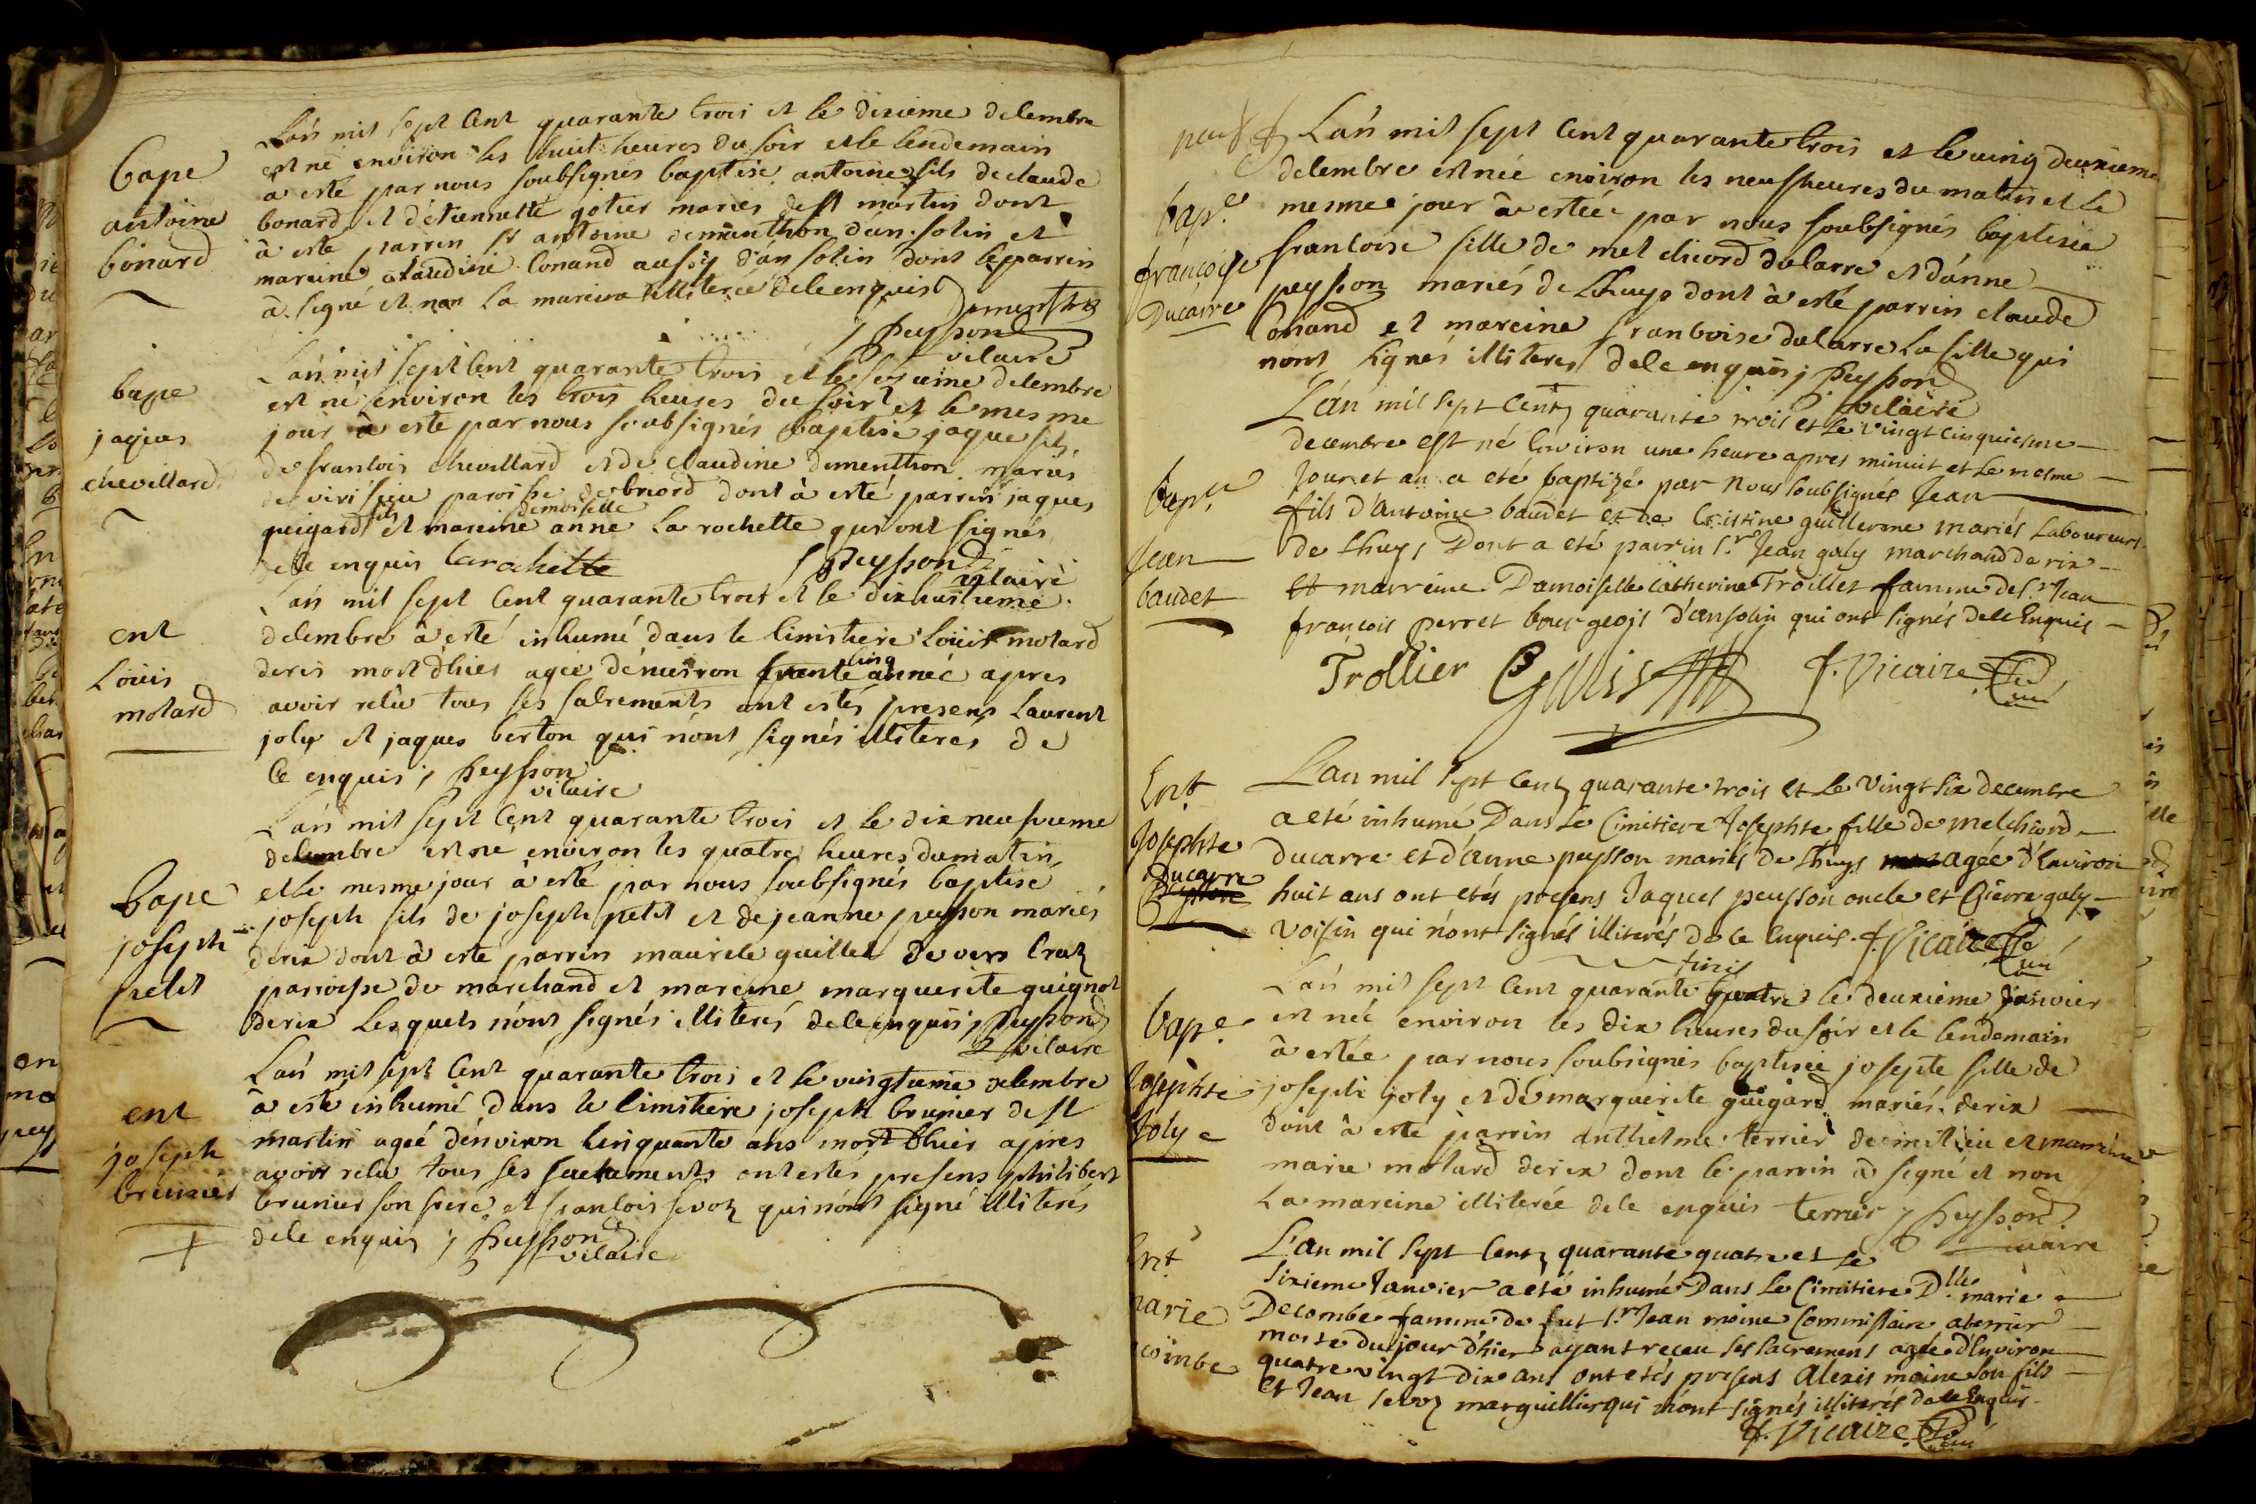 Bape
antoine
bonard
L'an mil sept cent quarante trois et le dixieme delembre
est né environ les huit heures du soir et le lendemain
à esté par nous soubsignés baptisé antoine fils de claude
bonard et d'etiennette gotier mariés de st martin dont
à esté parrin sr antoine dementhon d'an solin et
mareine claudine Conand aussy d'an solin dont le parrin
à signé et non la mareina illiterée dele enquis Dementhon
j peysson
vicaire
bape
jaques
chevillard
L'an mil sept cent quarante trois et le seizieme delembre
est né environ les trois heures du soir et le mesme
jour à esté par nous soubsignés baptisé jaque fils
de franlois chevillard et de claudine dementhon mariés
de viri sieu paroisse de briord dont à esté parrin jaques
guigard fils et mareine demoiselle anne la rochette qui ont signés
dele enquis larochette j peysson
vicaire
ent
Loüis
motard
L'an mil sept cent quarante trois et le dixhuitieme
delembre à esté inhumé dans le limistiere Loüis motard
derix mort d'hier agée d'environ trente cinq année apres
avoir relû tous ses salrements ont estés presens Laurent
joly et jaques berton qui n'ont signés illiterés de
le enquis j peysson
vicaire
Bape
joseph
petit
L'an mil sept cent quarante trois et le dix neufvieme
delembre est né environ les quatre heures du matin
et le mesme jour à esté par nous soubsignés baptisé
joseph fils de joseph petit et de jeanne peysson mariés
derix dont à esté parrin maurile guillet de vers Craz
parroisse de marchand et mareine marguerite guignot
derix Lesquels n'ont signés illiterés dele enquis j peysson
vicaire
ent
joseph
brunier
L'an mil sept cent quarante trois et le vingtieme delembre
à esté inhumé dans le limistiere joseph brunier de st
martin ageé d'environ linquante ans mort d'hier apres
avoir relu tous ses sacrements ont estés presens philibert
brunier son frere et franlois sevoz qui n'ont signé illiterés
dele enquis j peysson
vicaire
bap.e
françoise
Ducarre
L'an mil sept cent quarante trois et le ving deuxieme
delembre est née environ les neuf heures du matin et le
mesme jour à estée par nous soubsignés baptisée
franloise fille de mel chiord dularre et d'anne
peysson mariés de Lhuys dont à esté parrin claude
Conand et mareine franboise dularre la fille qui
nont signés illiteres dele enquis j peysson
vicaire
bap.e
Jean
baudet
L'an mil sept Centz quarante trois et Le vingt cinquiesme
decembre est né Environ une heure apres minuit et Le mesme
Jour et an a eté baptizé par Nous soubsignés Jean
fils d'antoine baudet et de Cristine guillerme mariés Laboureurs
de Lhuys Dont a eté parrin s.r Jean galy marchand de rix
et marreine Damoiselle Catherine Trollier famme de s.r Jean
françois perret bourgeois d'ansolin qui ont signés dele Enquis
Trollier Galis J. Vicaire
Ent
Josephte
Ducarre
L'an mil sept centz quarante trois et Le vingt six decembre
a eté inhumé Dans Le Cimitiere Josephte fille de melchiord
ducarre et d'anne peysson mariés de Lhuys agée d'Environ
huit ans ont etés presens Jaques peysson oncle et Pierre galy
voisin qui n'ont signés illiterés de le Enquis. J. Vicaire
Bap.e
Josephte
Joly
L'an mil sept cent quarante quatre le deuxieme janvier
est née environ les dix heures du soir et le lendemain
à estée par nous soubsignés baptisée josepte fille de
joseph joly et de marguerite guigard mariés derix
dont à esté parrin anthelme terrier de milieu et mareine
marie motard derix dont le parrin à signé et non
La mareine illiterée dele enquis terrier j peysson
vicaire
Ent
marie
combe
L'an mil sept Centz quarante quatre et Le
sixieme Janvier a eté inhumé Dans Le Cimitiere D.lle marie
Decombe famme de fut s.r Jean moine Commissaire a terrier
morte du jour d'hier ayant receu ses sacremens agée d'Environ
quatre vingt dix ans ont etés presens Alexis moine son fils
et Jean sevoz marguillier qui n'ont signés illiterés dele Enquis
J. Vicaire